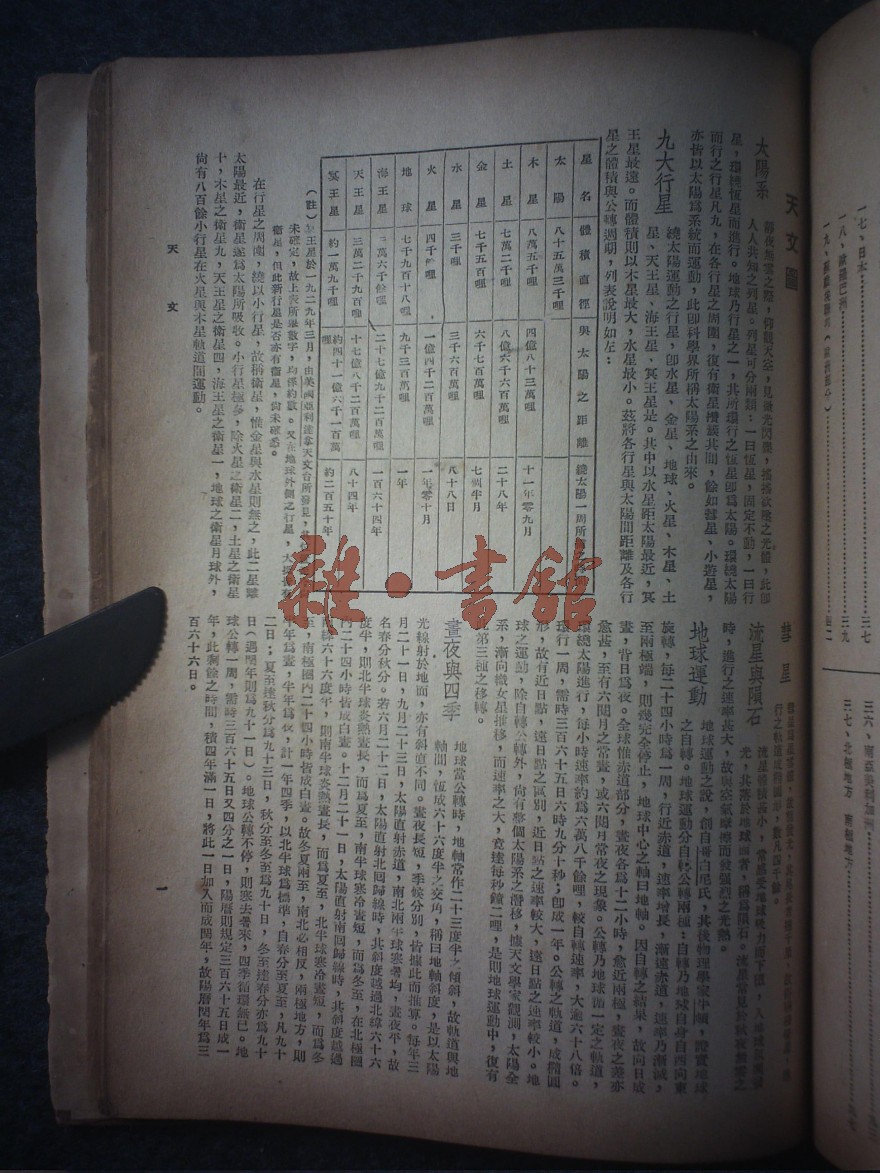 天文圖
太陽系
人人共知之列星。列星可分兩類：一曰恆星，固定不動，一曰行
星，環繞恆星而進行。地球乃行星之一，其所環行之恆星卽爲太陽。環繞太陽
而行之行星凡九，在各行星之周圍，復有衛星攢簇其間，餘如彗星、小遊星，
亦皆以太陽爲系統而運動，此卽科學界所稱太陽系之由來。
九大行星
繞太陽運動之行星，卽水星、金星、地球、火星、木星、土
星、天王星、海王星、冥王星是。其中以水星距太陽最近，冥
王星最遠。而體積則以木星最大，水星最小。茲將各行星與太陽間距離及各行
星之體積與公轉週期，列表說明如左：
星名 體積直徑 與太陽之距離 繞太陽一周所
太陽 八十五萬三千哩
木星 八萬五千哩 四億八十三萬哩 十一年零九月
土星 七萬二千哩 八億六千六百萬哩 二十八年
金星 七千五百哩 六千七百萬哩 七個半月
水星 三千哩 三千六百萬哩 八十八日
火星 四千哩 一億四千二百萬哩 一年零十月
地球 七千九百十八哩 九千三百萬哩 一年
海王星 三萬六千餘哩 二十七億九千二百萬哩 一百六十四年
天王星 三萬二千九百哩 十七億八千二百萬哩 八十四年
冥王星 約一萬九千哩 約四十一億六千一百萬哩 約二百五十年
（註）冥王星於一九二九年三月，由美國亞利
未確定，故上表所舉數字，均係約數。又在地球外側之行星，大
衛星，但此新行星是否亦有衛星，尙未確悉。
在行星之周圍，繞以小行星，故稱衛星，惟金星與水星則無之，此二星離
太陽最近，衛星遂爲太陽所吸收。小行星極多，除火星之衛星二，土星之衛星
十，木星之衛星九，天王星之衛星四，海王星之衛星一，地球之衛星月球外，
尙有八百餘小行星在火星與木星軌道間運動。
天文
彗星
流星與隕石
時，進行之速率甚大，故與空氣摩擦而發強烈之光熱。
地球運動
地球運動之說，創自哥白尼氏，其後物理學家牛頓，證實地球
之自轉。地球運動分自轉公轉兩種：自轉乃地球自身自西向東
旋轉，每二十四小時爲一周，行近赤道，速率增長，漸遠赤道，速率乃漸減，
至兩極端，則幾完全停止，地球中心之軸曰地軸。因自轉之結果，故向日成
晝，背日爲夜。全球惟赤道部分，晝夜各爲十二小時，愈近兩極，晝夜之差亦
愈甚，至有六閱月之常晝，或六閱月常夜之現象。公轉乃地球循一定之軌道，
環繞太陽進行，每小時速率約爲六萬八千餘哩，較自轉速率，大過六十八倍。
環行一周，需時三百六十五日六時九分十秒；卽成一年。公轉之軌道，成橢圓
形，故有近日點，遠日點之區別，近日點之速率較大，遠日點之速率較小。地
球之運動，除自轉公轉外，尙有整個太陽系之潛移，據天文學家觀測，太陽全
系，漸向織女星推移，而速率之大，竟達每秒鐘二哩，是則地球運動中，復有
第三種之移轉。
晝夜與四季
地球當公轉時，地軸常作二十三度半之傾斜，故軌道與地
軸間，恆成六十六度半之交角，稱曰地軸斜度，是以太陽
光線射於地面，亦有斜直不同。晝夜長短，季候分別，皆據此而推算。每年三
月二十一日，九月二十三日，太陽直射赤道，南北兩半球寒暑均，晝夜平，故
名春分秋分。若六月二十二日，太陽直射北回歸線時，其斜度越過北緯六十六
度半，則北半球炎熱晝長，而爲夏至，南半球寒冷晝短，而爲冬至，在北極圈
內二十四小時皆成白晝。十二月二十一日，太陽直射南回歸線時，其斜度越過
南緯六十六度半，則南半球炎熱晝長，而爲夏至，北半球寒冷晝短，而爲冬
至，南極圈內二十四小時皆成白晝。故冬夏兩至，南北必相反，兩極地方，則
半年爲晝，半年爲夜，計一年四季，以北半球爲標準，自春分至夏至，凡九十
二日；夏至迄秋分爲九十三日，秋分至冬至爲九十日，冬至迄春分亦爲九十
日（遇閏年則爲九十一日）。地球公轉不停，則寒去暑來，四季循環無已。地
球公轉一周，需時三百六十五日又四分之一日，陽曆則規定三百六十五日成一
年，此剩餘之時間，積四年滿一日，將此一日加入而成閏年，故陽曆閏年爲三
百六十六日。
一
一七、日本
三七
三九
三七、北極地方 南極地方
雜·書館